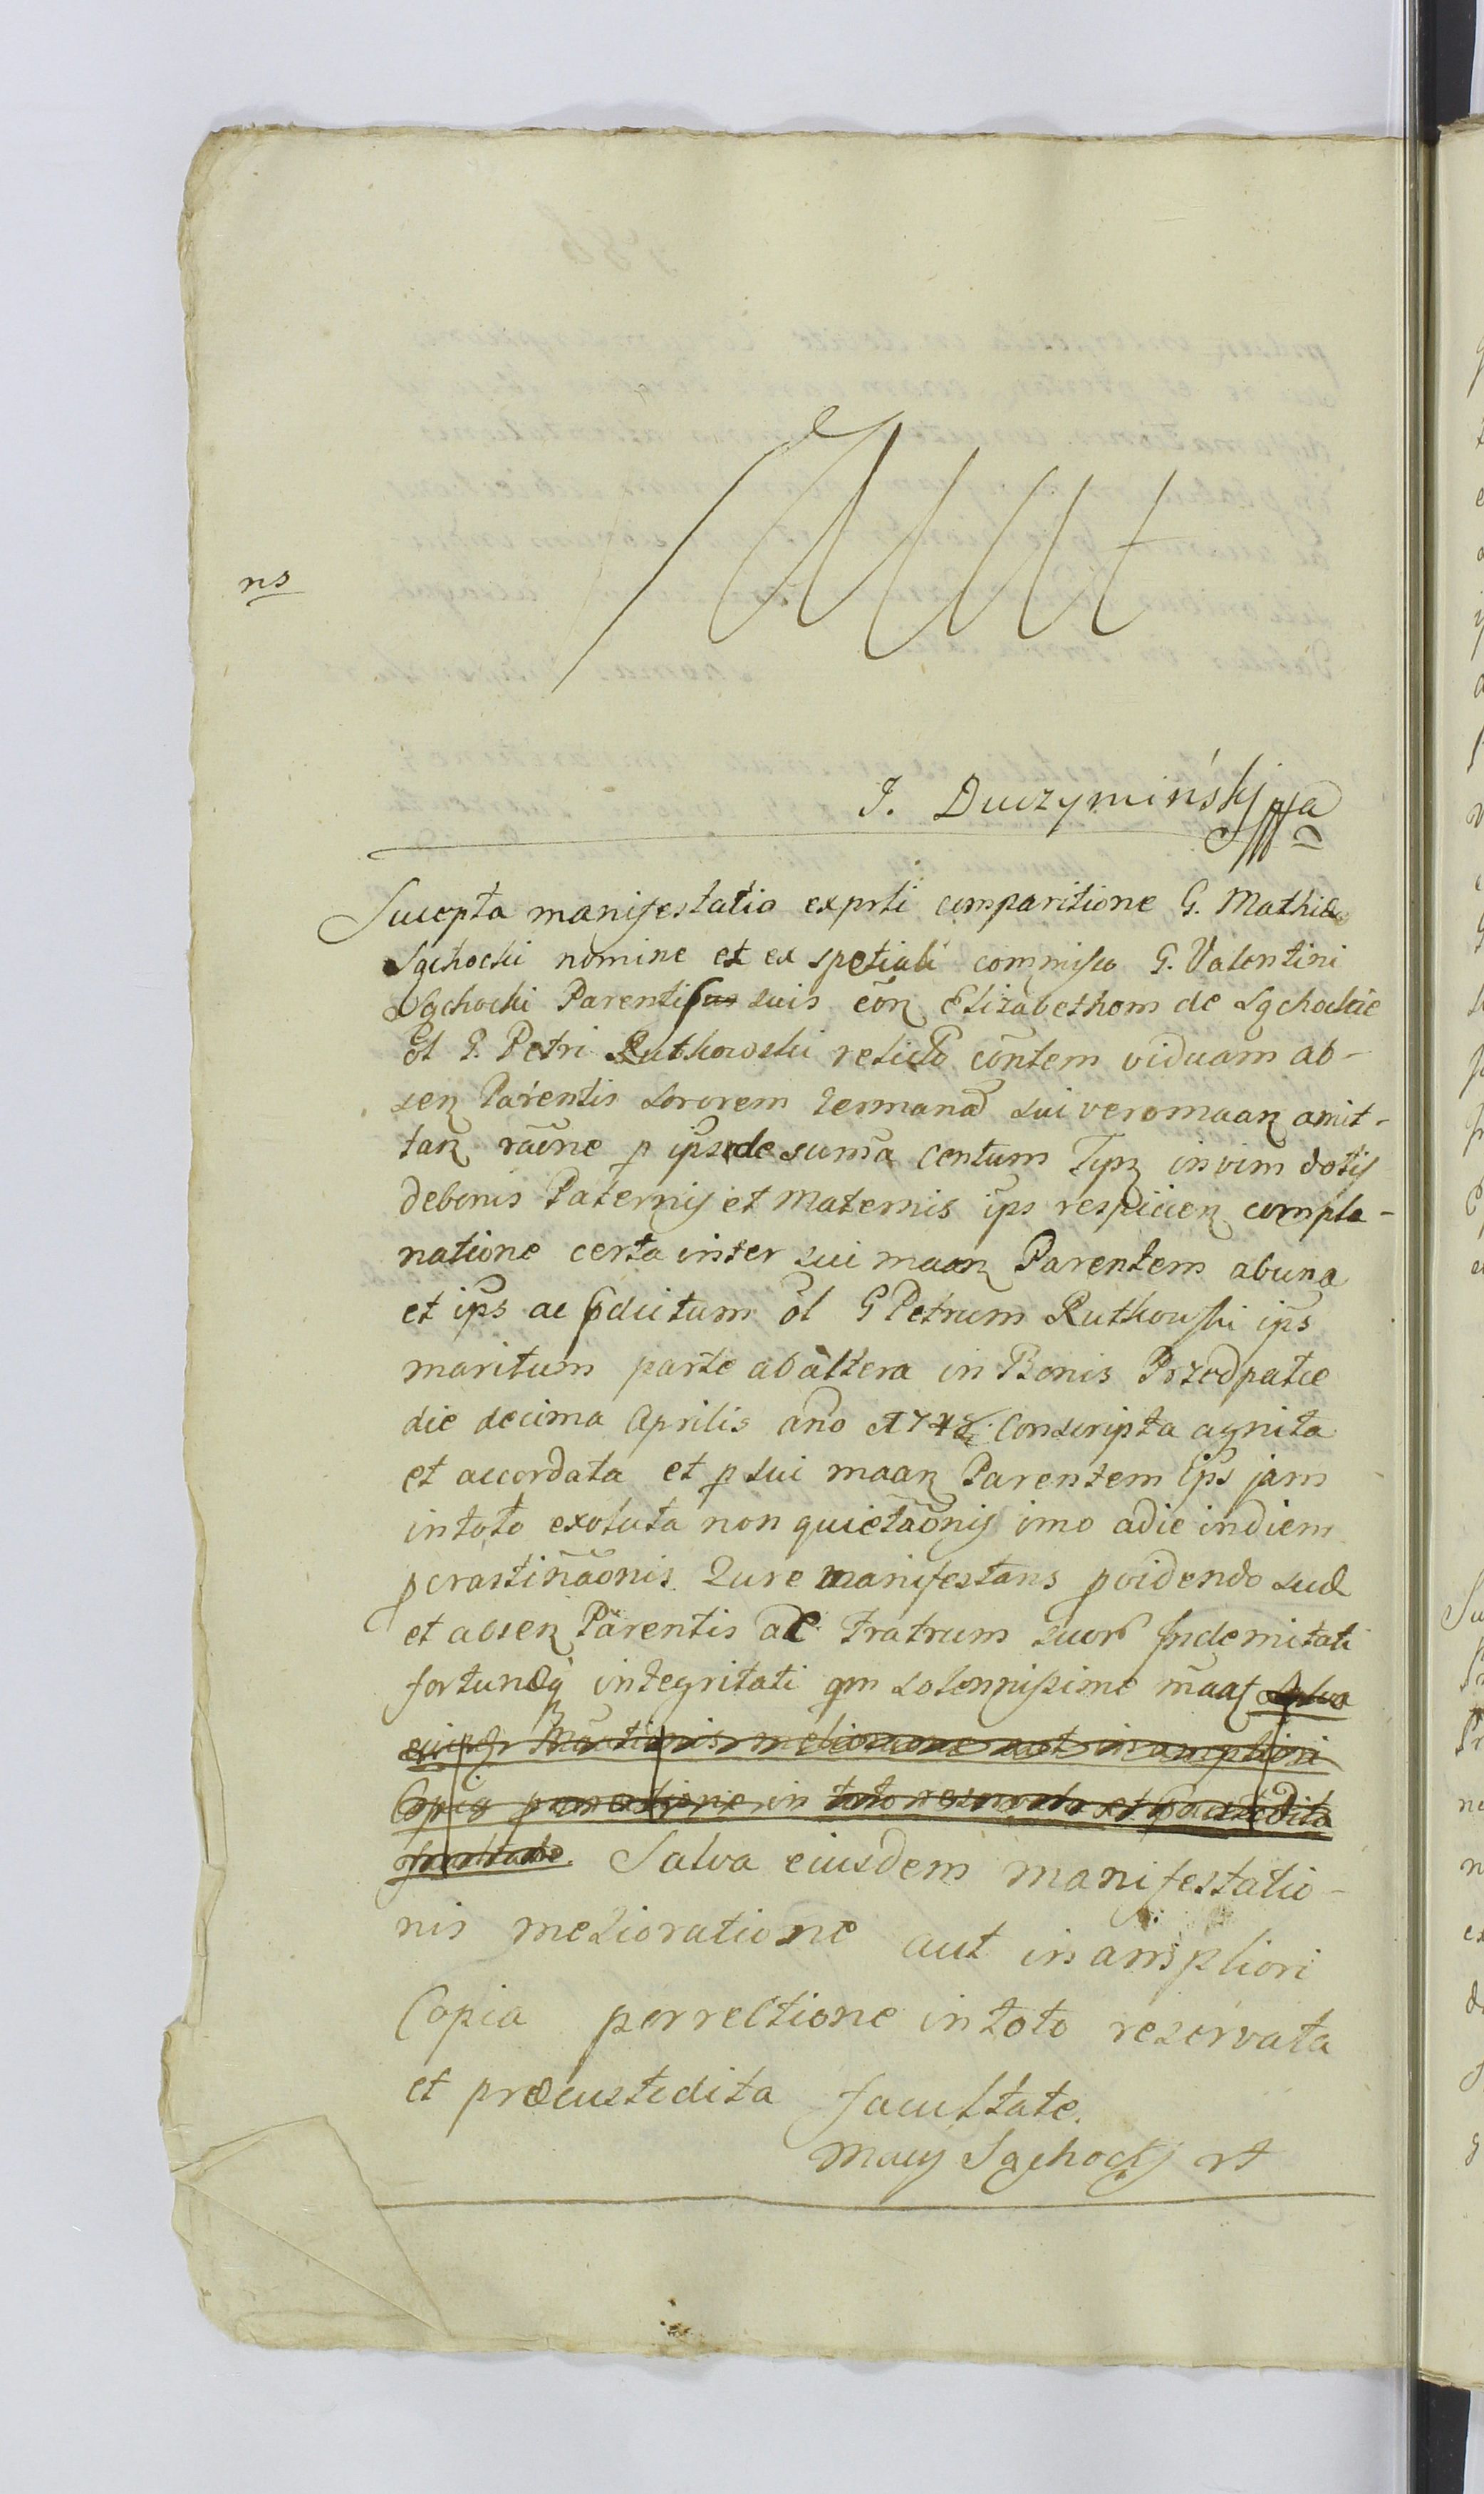 ns
J. Duczymiński
Suscepta manifestatio exprti comparitione G. Mathiæ
Sąchocki nomine et ex spetiali commisso G. Valentini
Sąchocki Parentis suis cōn Elizabetham de Sąchockie
ol G. Petri Rutkowski relictā cōntem viduam ab-
sen Parentis Sororem Germanā sui vero maan amit-
tan raōne p ips de suma Centum Tyn in vim dotis
de bonis Paternis et Maternis ips respicien compla-
natione certa inter sui maan Parentem ab una
et ips ac pdictum ol G Petrum Rutkowski ips
maritum parte ab altera in Bonis Przedpałce
die decima Aprilis año 174 Conscripta agnita
et accordata et p sui maan Parentem ips jam
in toto exoluta non quietaōnis imo a die in diem
pcrastinaōnis Qure manifestans pvidendo suæ
et absen Parentis ac Fratrum suor Indemitati
fortunæq integritati qm solennissime māat Salva
eiusd Māntionis melioraone aut in ampliori
Copia porrectione in toto reservata et præcustodita
facultate. Salva eiusdem manifestatio-
nis melioratione aut in ampliori
Copia porrectione in toto reservata
et præcustodita facultate.
Maciy Sąchocky